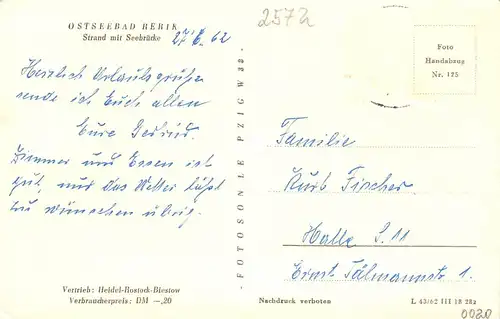 OSTSEEBAD RERIK
Strand mit Seebrücke
27.6.62
2572
Herzlich Urlaubsgrüße
sende ich Euch allen
Eure Gertrud.
Zimmer und Essen ist
gut, nur das Wetter läßt
zu wünschen übrig.
Vertrieb: Heidel-Rostock-Biestow
Verbraucherpreis: DM —,20
FOTOSONLEPZIGW 32
Foto
Handabzug
Nr. 125
Familie
Kurt Fischer
Halle S. 11
Ernst Tälmannstr. 1.
Nachdruck verboten
L 43/62 III 18 28z
0020